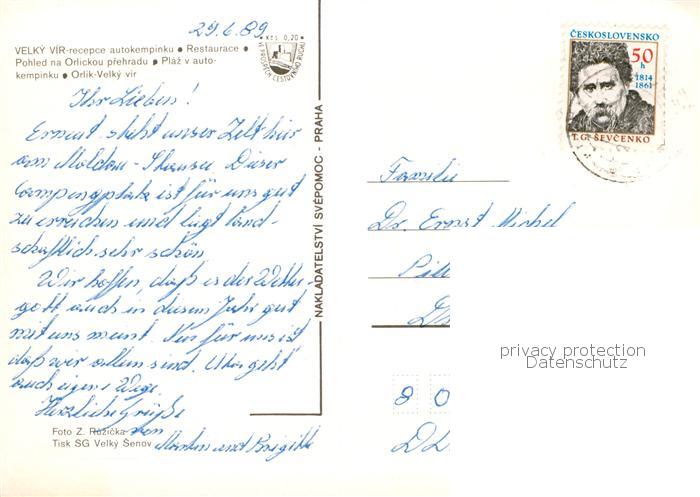 29.6.89
VELKÝ VÍR-recepce autokempinku ● Restaurace ●
Pohled na Orlickou přehradu ● Pláž v auto-
kempinku ● Orlík-Velký vír
Kčs 0,20
VE PROSPĚCH CESTOVNÍHO RUCHU
Ihr Lieben!
Erneut steht unser Zelt hier
am Moldau-Stausee. Dieser
Campingplatz ist für uns gut
zu erreichen und liegt land-
schaftlich sehr schön.
Wir hoffen, daß es der Wetter-
gott auch in diesem Jahr gut
mit uns meint. Neu für uns ist
daß wir allein sind. Uta geht
auch eigene Wege.
Herzliche Grüße
von
Martin und Brigitte
Foto Z. Růžička
Tisk SG Velký Šenov
NAKLADATELSTVÍ SVÉPOMOC - PRAHA
ČESKOSLOVENSKO
50
h
1814
1861
T.G. ŠEVČENKO
Familie
Dr. Ernst Michel
8 0
privacy protection
Datenschutz